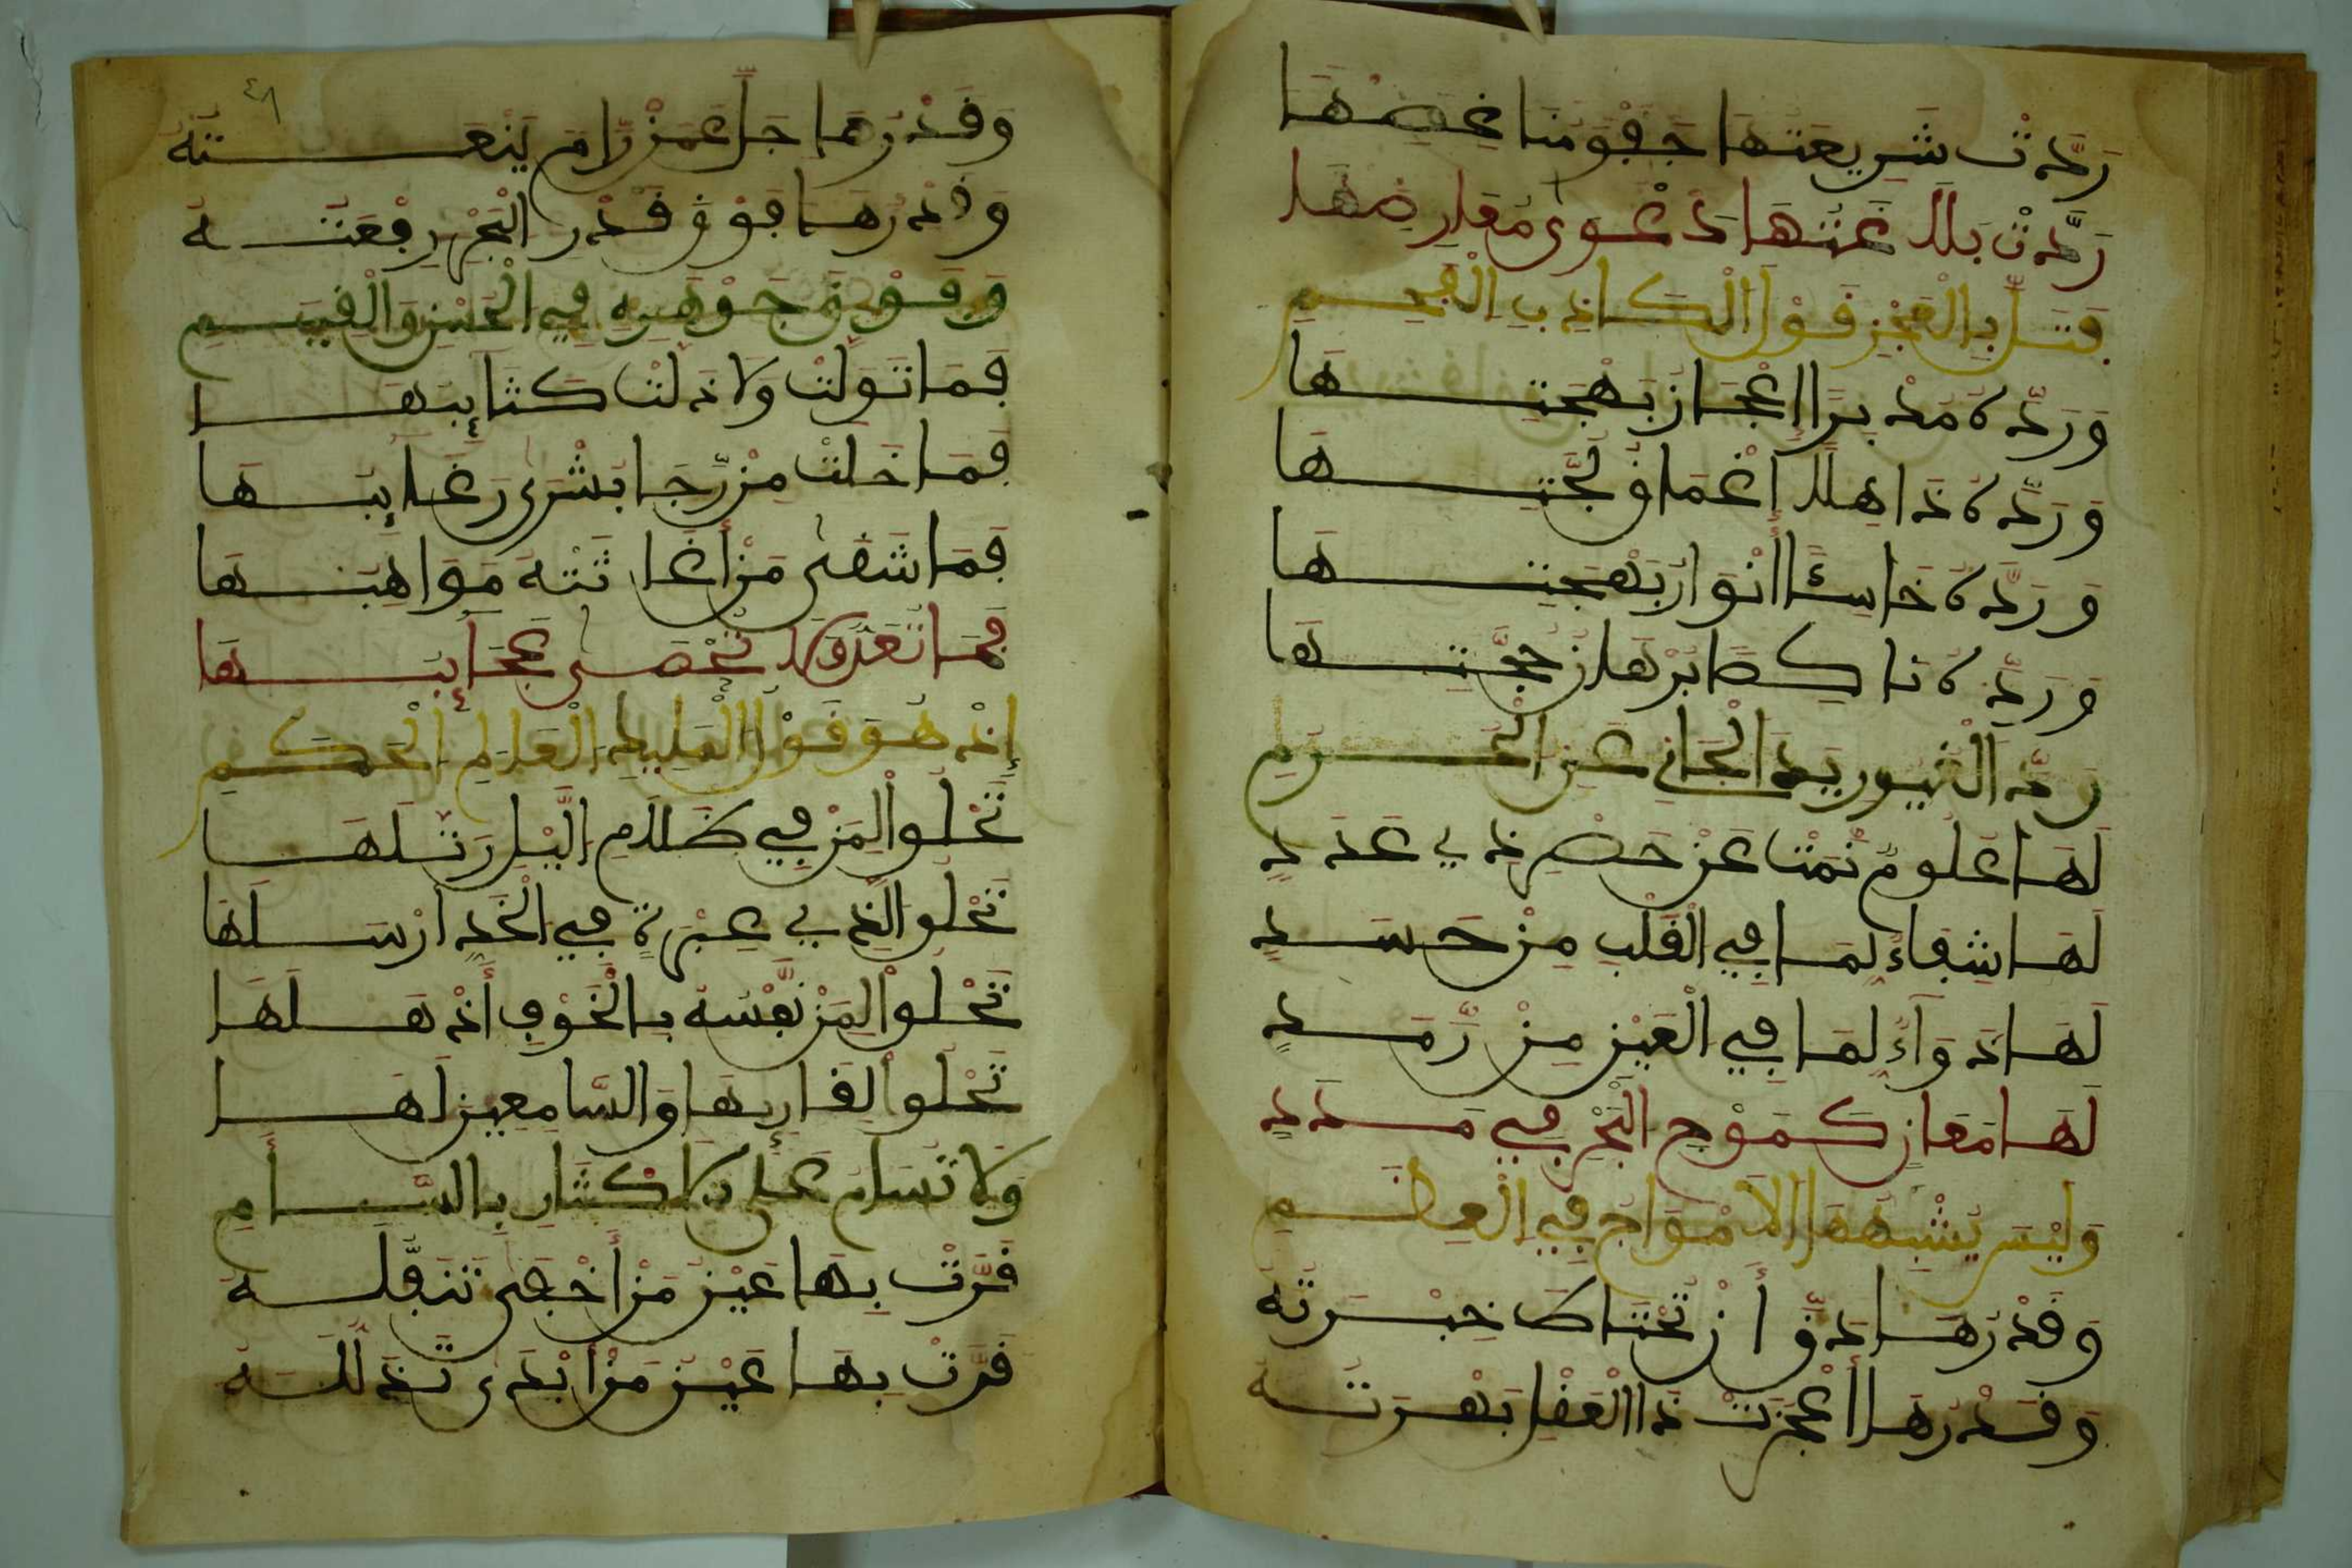 رَدَّتْ شَرِيعَتُهَا حَقَّوْمَنَا
رَدَّتْ بَلَاغَتُهَا دَعْوَى مُعَارِضِهَا
بِالْعَجْزِ قَوْلَ الْكَاذِبِ
وَرَدَّهُ مُدْبِرًا إِعْجَازُ بَهْجَتِهَا
وَرَدَّهُ ذَاهِلًا أَعْمَاقُ لُجَّتِهَا
وَرَدَّهُ خَاسِئًا أَنْوَارُ بَهْجَتِهَا
وَرَدَّهُ نَاكِصًا بُرْهَانُ حُجَّتِهَا
رَدَّ الْغَيُورِ يَدَ الْجَانِي عَنِ الْحَرَمِ
لَهَا عُلُومٌ نَمَتْ عَنْ حَصْرِ ذِي عَدَدِ
لَهَا شِفَاءٌ لِمَا فِي الْقَلْبِ مِنْ حَسَدِ
لَهَا دَوَاءٌ لِمَا فِي الْعَيْنِ مِنْ رَمَدِ
لَهَا مَعَانٍ كَمَوْجِ الْبَحْرِ فِي مَدَدِ
وَلَيْسَ يُشْبِهُهَا الْأَمْوَاجُ فِي الْعِظَمِ
وَقَدْرُهَا دَقَّ أَنْ تَحْتَاكَ خِبْرَتُهُ
وَقَدْرُهَا أَعْجَزَتْ ذَا الْعَقْلِ
وَقَدْرُهَا جَلَّ عَمَّنْ رَامَ يَنْعَتُهُ
وَقَدْرُهَا فَوْقَ قَدْرِ الْبَحْرِ رِفْعَتُهُ
وَفَوْقَ جَوْهَرِهِ فِي الْحُسْنِ وَالْقِيَمِ
فَمَا تَوَلَّتْ وَلَا ذَلَّتْ كَتَائِبُهَا
فَمَا خَلَتْ مِنْ رَجَا بُشْرَى رَغَائِبُهَا
فَمَا شَقَى مَنْ أَغَاثَتْهُ مَوَاهِبُهَا
فَمَا تُعَدُّ وَلَا تُحْصَى عَجَائِبُهَا
إِذْ هُوَ قَوْلُ الْمَلِيكِ الْعَالِمِ الْحَكَمِ
تَحْلُوا لِمَنْ فِي ظَلَامِ اللَّيْلِ رَتَّلَهَا
تَحْلُوا لِذِي عِبْرَةٍ فِي الْخَدِّ أَرْسَلَهَا
تَحْلُوا لِمَنْ نَفْسَهُ بِالْخَوْفِ أَذْهَلَهَا
تَحْلُوا لِقَارِيهَا وَالسَّامِعِينَ لَهَا
وَلَا تُسَامُ عَلَى الْإِكْثَارِ بِالسَّأَمِ
قَرَّتْ بِهَا عَيْنُ مَنْ أَخْفَى تَنَفُّلَهُ
قَرَّتْ بِهَا عَيْنُ مَنْ أَبْدَى تَذَلُّلَهُ